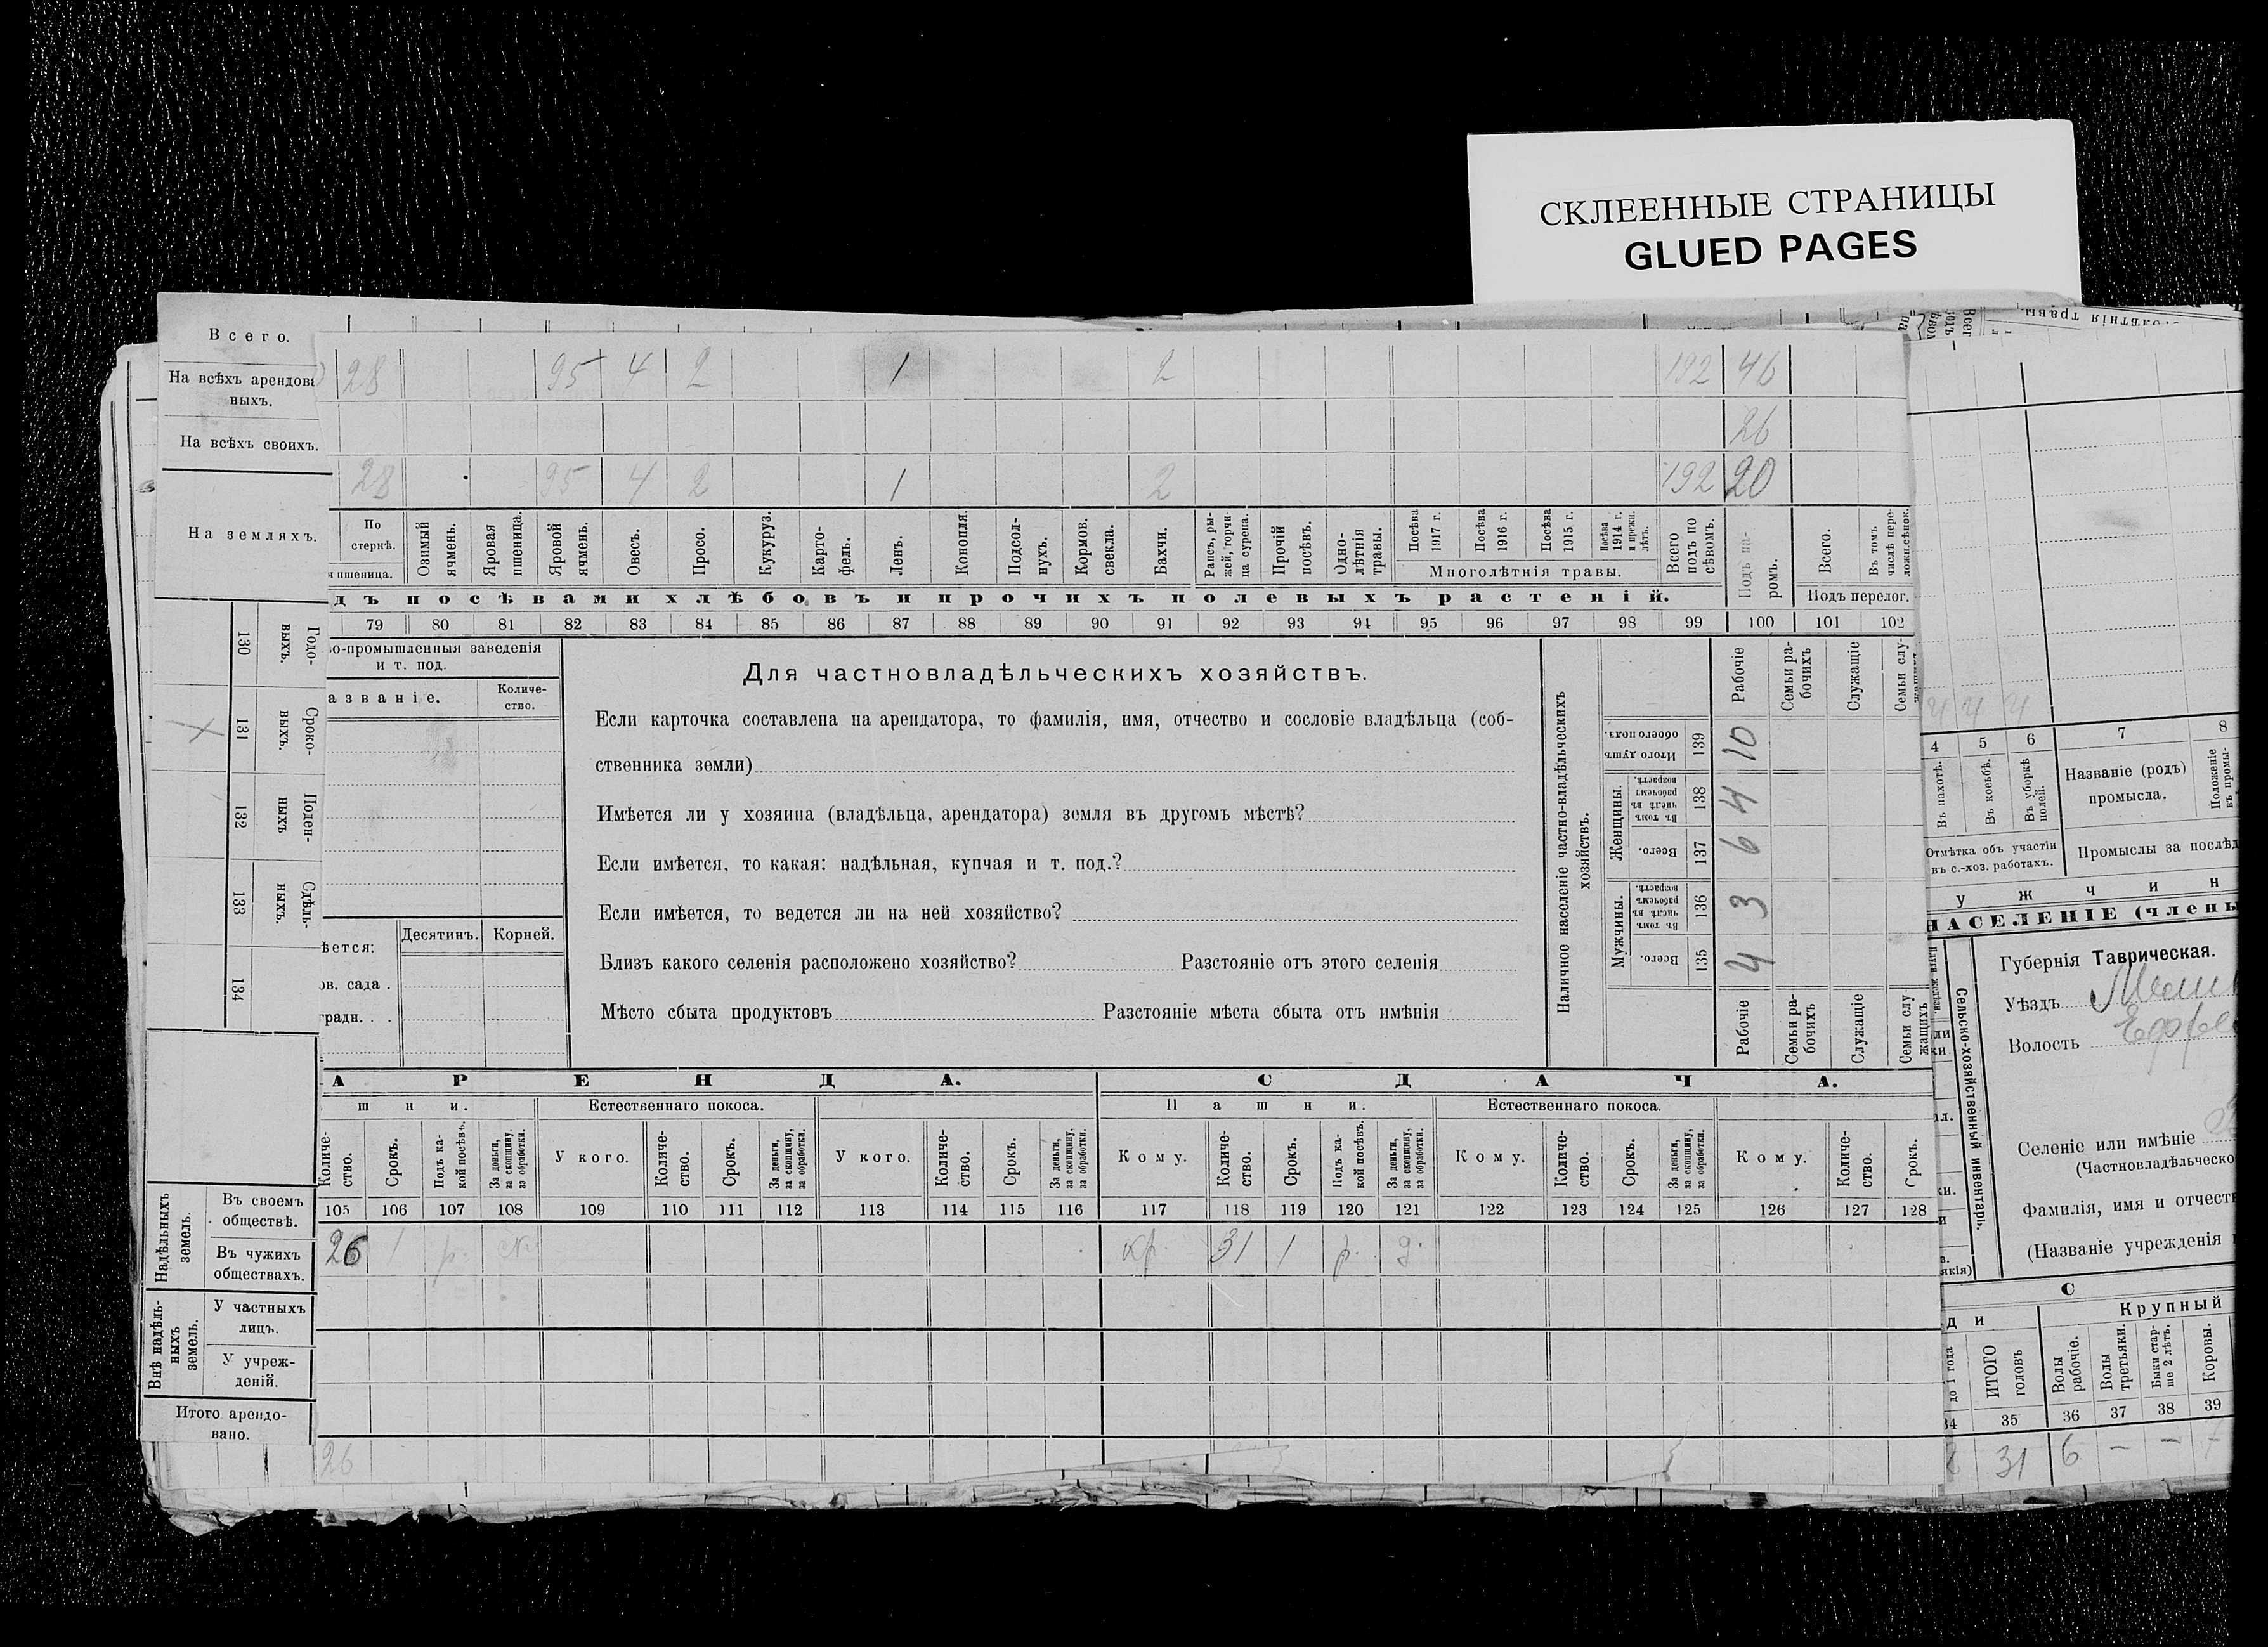 СКЛЕЕННЫЕ СТРАНИЦЫ
GLUED PAGES
Всего.
На всѣхъ арендова
ныхъ.
28 95 4 2 1 2 192 46
На всѣхъ своихъ.
26
28 95 4 2 1 2 192 20
На земляхъ.
По стернѣ.
я пшеница.
Озимый ячмень.
Яровая пшеница.
Яровой ячмень.
Овесъ.
Просо.
Кукуруз.
Карто-фель.
Ленъ.
Конопля.
Подсол-нухъ.
Кормов. свекла.
Бахчи.
Рапсъ, ры-жей, горчи-ца сурепа.
Прочій посѣвъ.
Одно-лѣтнія травы.
Посѣва 1917 г.
Посѣва 1916 г.
Посѣва 1915 г.
Посѣва 1914 г. и прежн. лѣтъ.
Многолѣтнія травы.
Всего подъ по сѣвомъ.
Подъ па-ромъ.
Всего.
Въ томъ числѣ пере-ложн.сѣнок.
Подъ перелог.
дъ посѣвами хлѣбовъ и прочихъ полевыхъ растеній.
79 80 81 82 83 84 85 86 87 88 89 90 91 92 93 94 95 96 97 98 99 100 101 102
130 Годо-выхъ.
131 Сроко-выхъ.
132 Поден-ныхъ
133 Сдѣль-ныхъ.
134
во-промышленныя заведенія
и т. под.
азваніе.
Количе-ство.
ѣется:
Десятинъ.
Корней.
ов. сада .
градн. . .
Для частновладѣльческихъ хозяйствъ.
Если карточка составлена на арендатора, то фамилія, имя, отчество и сословіе владѣльца (соб-
ственника земли)
Имѣется ли у хозяина (владѣльца, арендатора) земля въ другомъ мѣстѣ?
Если имѣется, то какая: надѣльная, купчая и т. под.?
Если имѣется, то ведется ли на ней хозяйство?
Близъ какого селенія расположено хозяйство? Разстояніе отъ этого селенія
Мѣсто сбыта продуктовъ Разстояніе мѣста сбыта отъ имѣнія
Наличное населеніе частно-владѣльческихъ хозяйствъ.
Рабочіе
Семьи ра-бочихъ
Служащіе
Семьи слу-
Итого душъ обоего пола. 139 10
Женщины.
Въ томъ числѣ въ рабочемъ возрастѣ. 138 4
Всего. 137 6
Мужчины.
Въ томъ числѣ въ рабочемъ возрастѣ. 136 3
Всего. 135 4
Рабочіе
Семьи ра-бочихъ
Служащіе
Семьи слу-жащихъ
АРЕНДА.
СДАЧА.
шни.
Естественнаго покоса.
Пашни.
Естественнаго покоса.
Количе-ство.
Срокъ.
Подъ ка-кой посѣвъ.
За деньги, за скопщину, за обработки.
У кого.
Количе-ство.
Срокъ.
За деньги, за скопщину, за обработки.
У кого.
Количе-ство.
Срокъ.
За деньги, за скопщину, за обработки.
Кому.
Количе-ство.
Срокъ.
Подъ ка-кой посѣвъ.
За деньги, за скопщину, за обработки.
Кому.
Количе-ство.
Срокъ.
За деньги, за скопщину, за обработки.
Кому.
Количе-ство.
Срокъ.
105 106 107 108 109 110 111 112 113 114 115 116 117 118 119 120 121 122 123 124 125 126 127 128
Надѣльныхъ земель.
Въ своемъ обществѣ.
Въ чужихъ обществахъ.
26 1 р. кр 31 1 р. д.
Внѣ надѣль-ныхъ земель.
У частныхъ лицъ.
У учреж-деній.
Итого арендо-вано.
26
4 4 4
4 5 6 7 8
Въ пахотѣ.
Въ косьбѣ.
Въ уборкѣ полей.
Названіе (родъ) промысла.
Положеніе въ промы-
Отмѣтка объ участіи
въ с.-хоз. работахъ.
Промыслы за послѣд
у ж ч и н
НАСЕЛЕНІЕ (члены
Сельско-хозяйственный инвентарь.
Губернія Таврическая.
Уѣздъ
Волость
Селеніе или имѣніе
(Частновладѣльческо
Фамилія, имя и отчеств
(Названіе учрежденія
С
ди
Крупный
до 1 года
ИТОГО головъ
Волы рабочіе.
Волы третьяки.
Быки стар-ше 2 лѣтъ.
Коровы.
34 35 36 37 38 39
31 6 — —